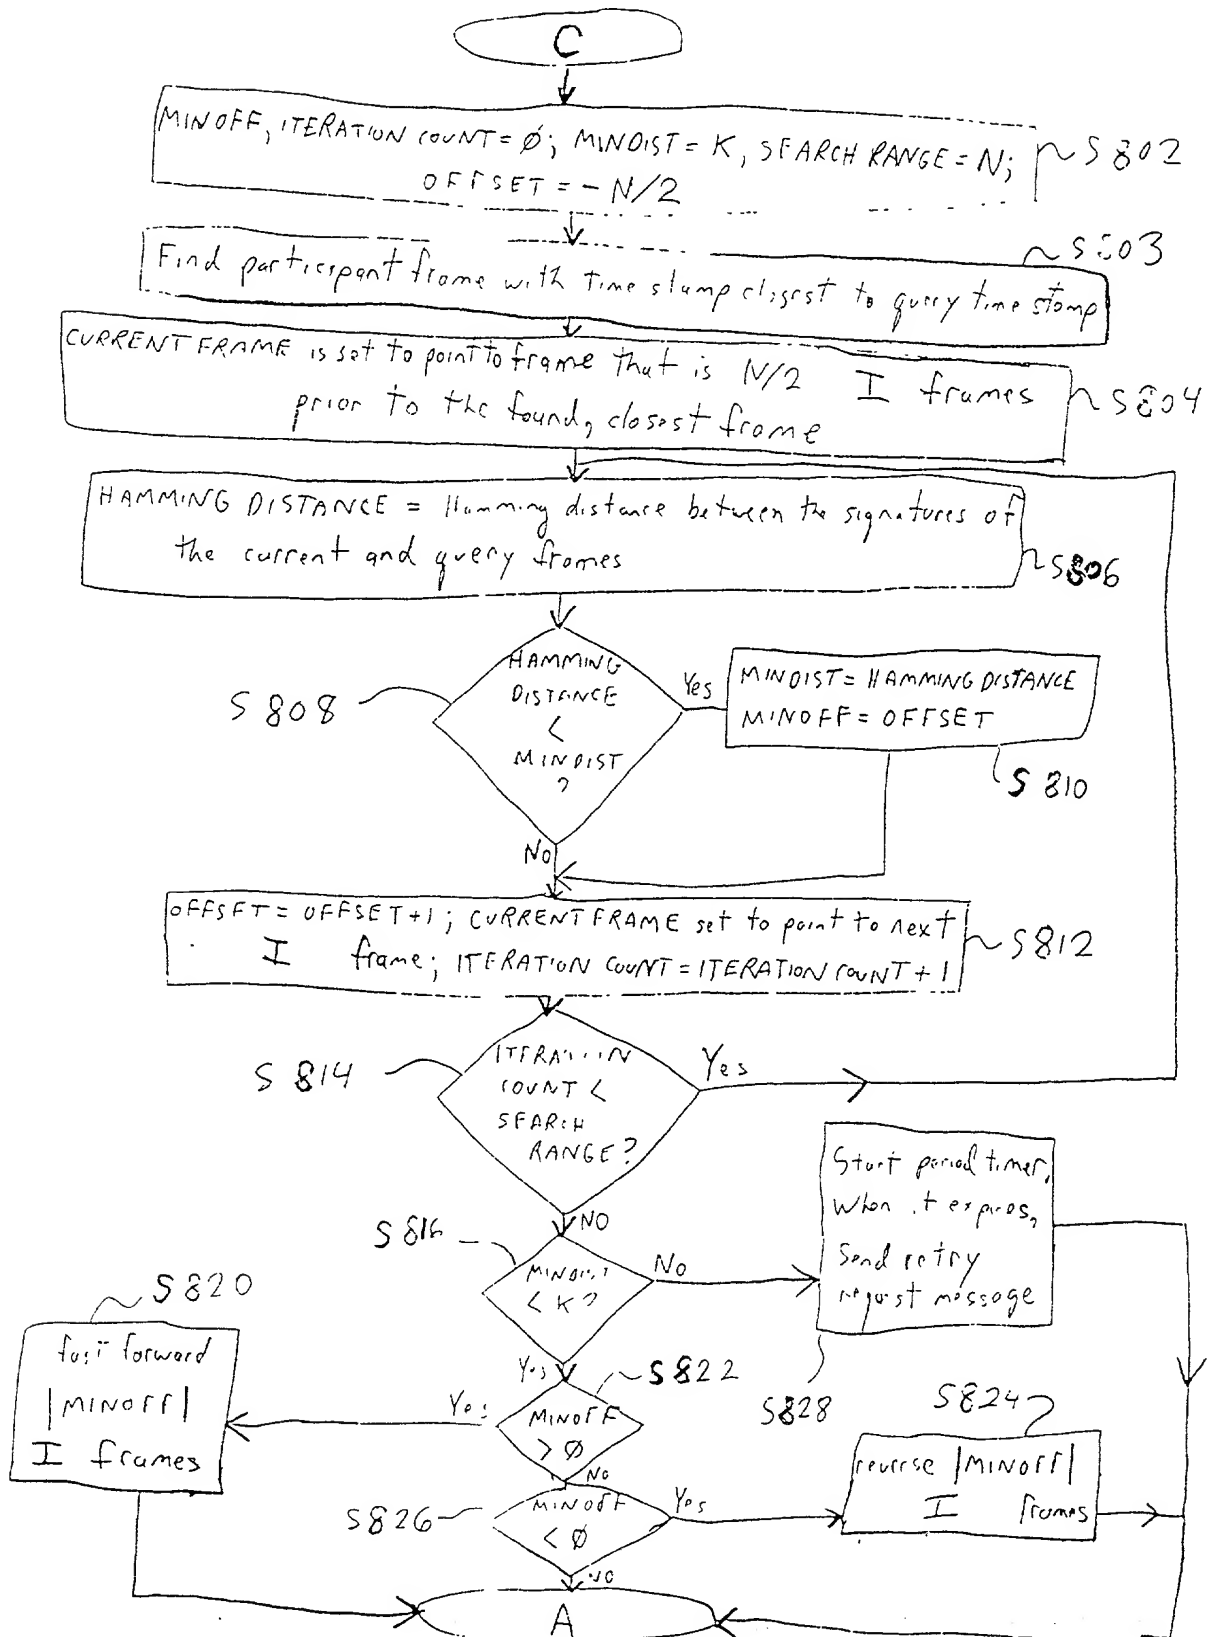 C
MINOFF, ITERATION COUNT=Ø; MINDIST=K, SEARCH RANGE=N;
OFFSET=-N/2
S802
S803
Find participant frame with time stamp closest to query time stamp
CURRENT FRAME is set to point to frame that is N/2 I frames
prior to the found, closest frame
S804
HAMMING DISTANCE = Hamming distance between the signatures of
the current and query frames
S806
HAMMING
DISTANCE
<
MINDIST
?
S808
Yes
MINDIST=HAMMING DISTANCE
MINOFF=OFFSET
S810
No
OFFSET=OFFSET+1; CURRENT FRAME set to point to next
I frame; ITERATION COUNT=ITERATION COUNT+1
S812
ITERATION
COUNT <
SEARCH
RANGE?
S814
Yes
NO
Start period timer,
When it expires,
Send retry
request message
S828
S816
MINDIST
<K?
No
Yes
S820
fast forward
|MINOFF|
I frames
Yes
S822
MINOFF
>Ø
No
S824
reverse |MINOFF|
I frames
S826
MINOFF
<Ø
Yes
NO
A